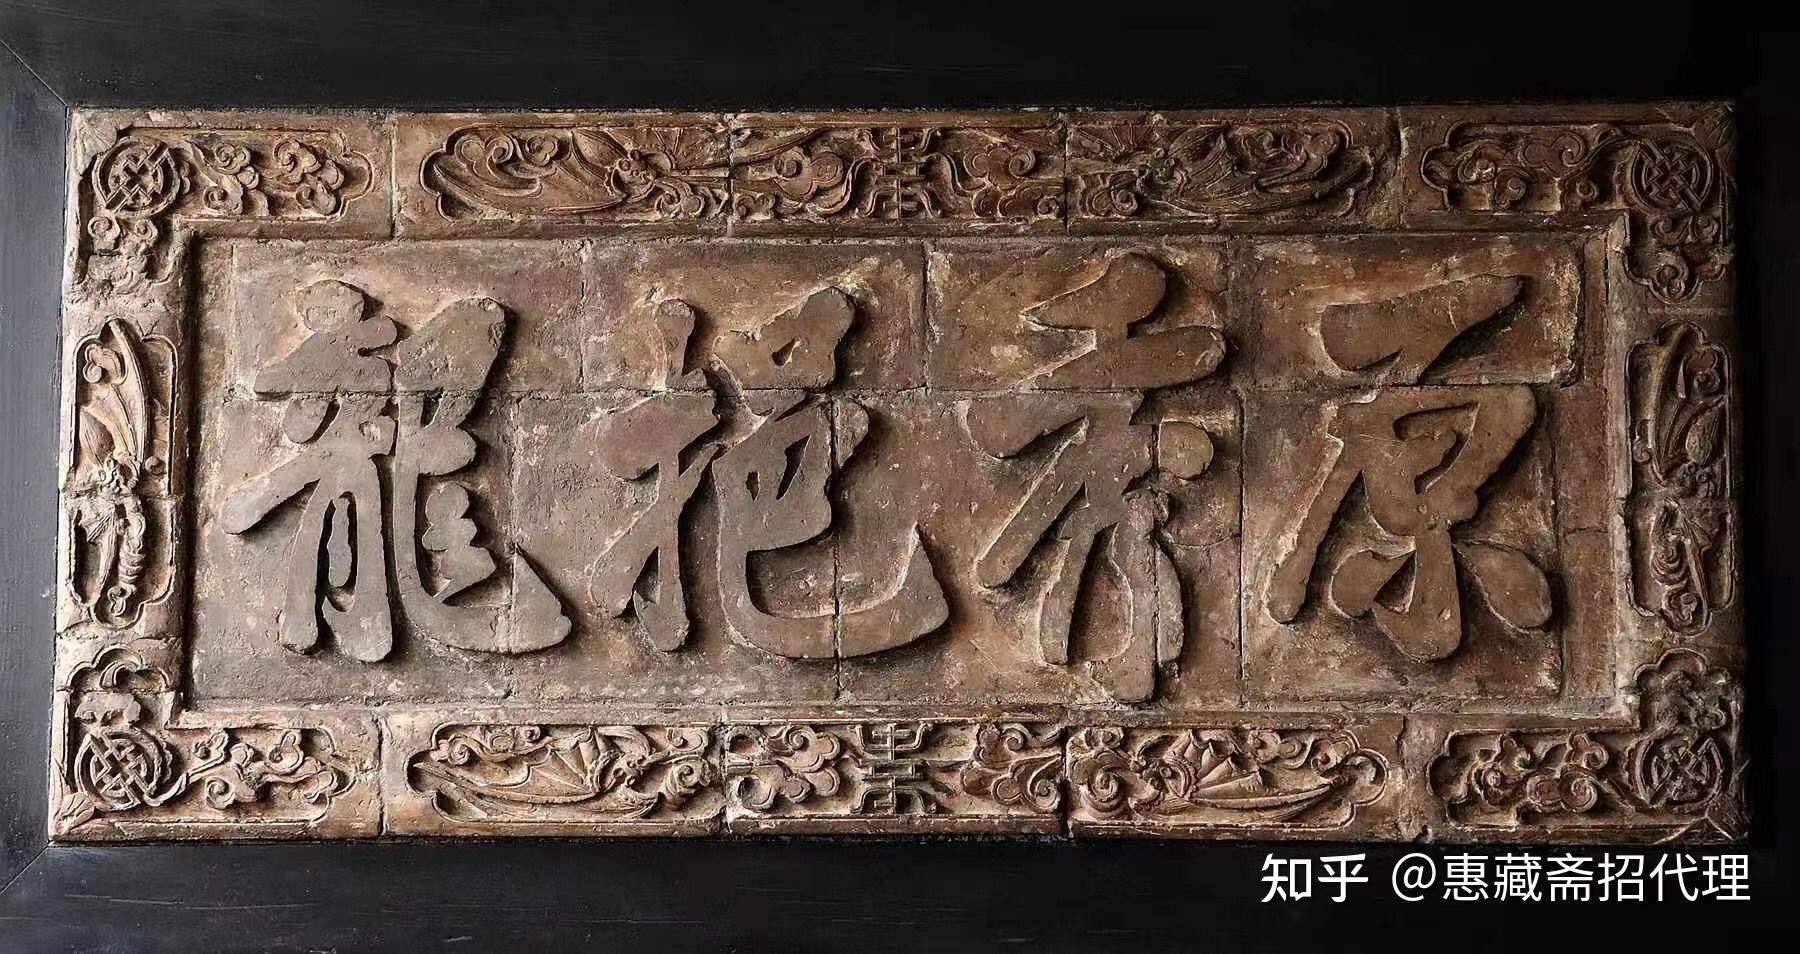 原挹龍
知乎 @惠藏斋招代理